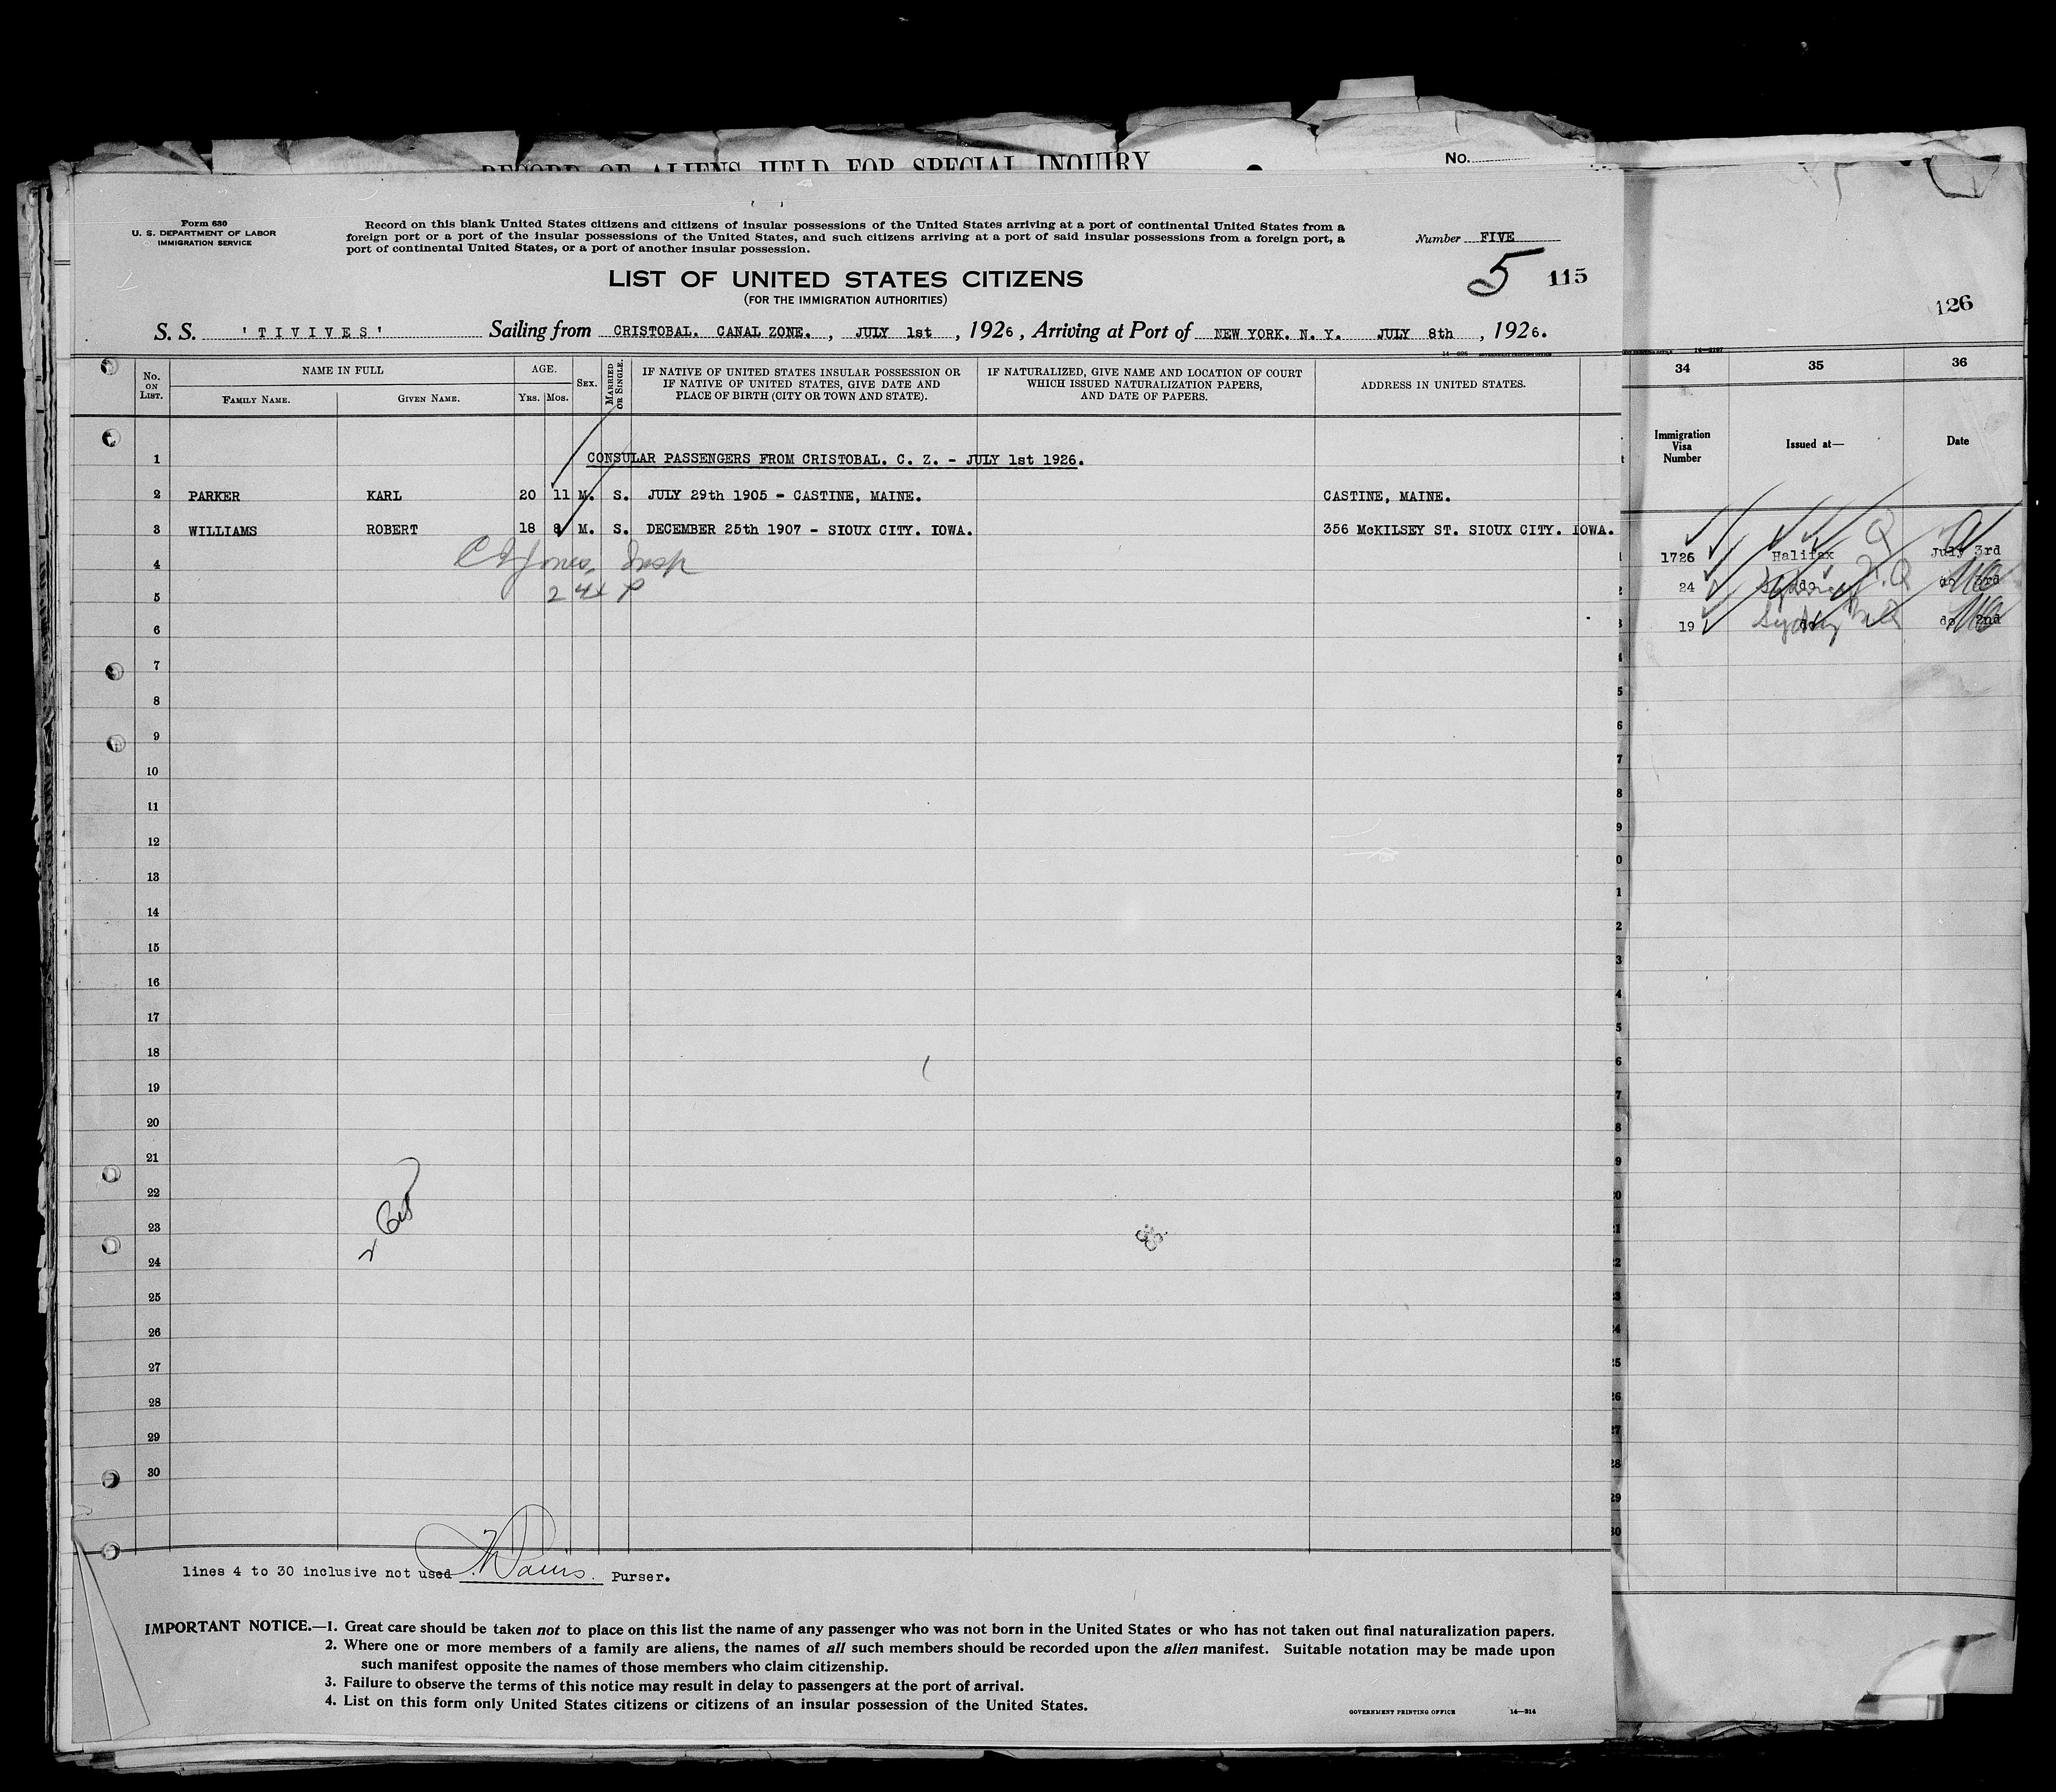 No.
Form 630
U. S. DEPARTMENT OF LABOR
IMMIGRATION SERVICE
Record on this blank United States citizens and citizens of insular possessions of the United States arriving at a port of continental United States from a
foreign port or a port of the insular possessions of the United States, and such citizens arriving at a port of said insular possessions from a foreign port, a
port of continental United States, or a port of another insular possession.
Number FIVE
5 115
LIST OF UNITED STATES CITIZENS
(FOR THE IMMIGRATION AUTHORITIES)
S. S. 'TIVIVES' Sailing from CRISTOBAL. CANAL ZONE. , JULY 1st , 1926 , Arriving at Port of NEW YORK. N. Y. JULY 8th , 1926.
No. ON LIST. NAME IN FULL FAMILY NAME. GIVEN NAME. AGE. YRS. MOS. SEX. MARRIED OR SINGLE. IF NATIVE OF UNITED STATES INSULAR POSSESSION OR IF NATIVE OF UNITED STATES, GIVE DATE AND PLACE OF BIRTH (CITY OR TOWN AND STATE). IF NATURALIZED, GIVE NAME AND LOCATION OF COURT WHICH ISSUED NATURALIZATION PAPERS, AND DATE OF PAPERS. ADDRESS IN UNITED STATES.
1 CONSULAR PASSENGERS FROM CRISTOBAL. C. Z. - JULY 1st 1926.
2 PARKER KARL 20 11 M. S. JULY 29th 1905 - CASTINE, MAINE. CASTINE, MAINE.
3 WILLIAMS ROBERT 18 M. S. DECEMBER 25th 1907 - SIOUX CITY. IOWA. 356 McKILSEY ST. SIOUX CITY. IOWA.
4
5
6
7
8
9
10
11
12
13
14
15
16
17
18
19
20
21
22
23
24
25
26
27
28
29
30
lines 4 to 30 inclusive not used Purser.
IMPORTANT NOTICE.—1. Great care should be taken not to place on this list the name of any passenger who was not born in the United States or who has not taken out final naturalization papers.
2. Where one or more members of a family are aliens, the names of all such members should be recorded upon the alien manifest. Suitable notation may be made upon
such manifest opposite the names of those members who claim citizenship.
3. Failure to observe the terms of this notice may result in delay to passengers at the port of arrival.
4. List on this form only United States citizens or citizens of an insular possession of the United States.
GOVERNMENT PRINTING OFFICE 14—214
126
34 35 36
Immigration Visa Number Issued at— Date
1726 Halifax July 3rd
24 do 3rd
19 Sydney do 2nd